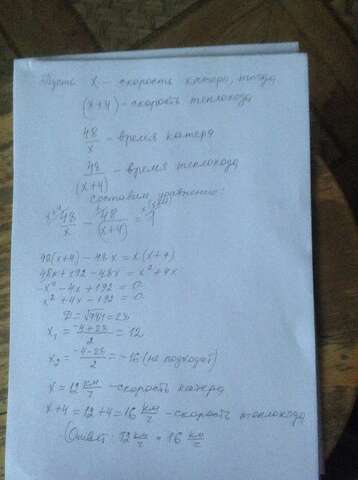 Пусть x - скорость катера, тогда
(x+4) - скорость теплохода
48/x - время катера
48/(x+4) - время теплохода
Составим уравнение:
48/x - 48/(x+4) = 1
48(x+4) - 48x = x(x+4)
48x + 192 - 48x = x² + 4x
-x² - 4x + 192 = 0
x² + 4x - 192 = 0
x₁ = (-4+28)/2 = 12
x₂ = (-4-28)/2 = -16 (не подходит)
x = 12 км/ч - скорость катера
x+4 = 12+4 = 16 км/ч - скорость теплохода
Ответ: 12 км/ч 16 км/ч